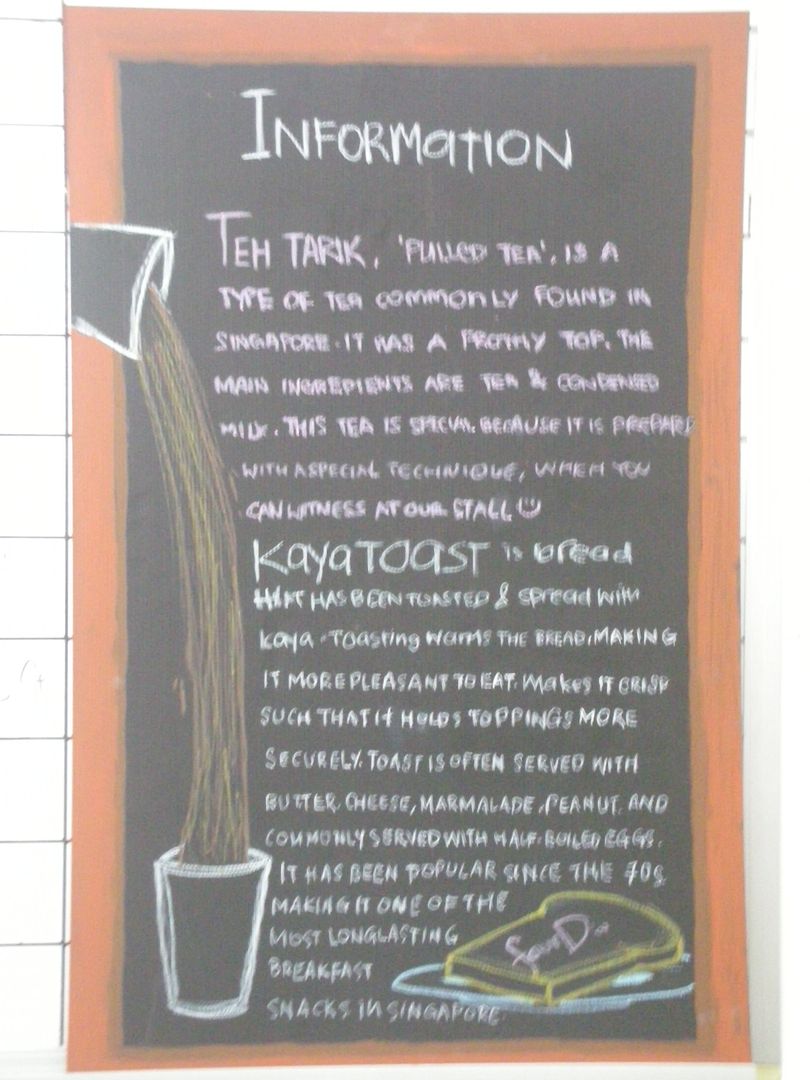 INFORMATION
TEH TARIK, 'PULLED TEA', IS A
TYPE OF TEA COMMONLY FOUND IN
SINGAPORE. IT HAS A FROTHY TOP. THE
MAIN INGREDIENTS ARE TEA & CONDENSED
MILK. THIS TEA IS SPECIAL BECAUSE IT IS PREPARE
WITH A SPECIAL TECHNIQUE, WHEN YOU
CAN WITNESS AT OUR STALL
Kaya TOAST is bread
HAS BEEN TOASTED & spread with
kaya. Toasting warms THE BREAD, MAKING
IT MORE PLEASANT TO EAT. Makes IT CRISP
SUCH THAT it HOLDS TOPPINGS MORE
SECURELY. TOAST IS OFTEN SERVED WITH
BUTTER, CHEESE, MARMALADE, PEANUT, AND
COMMONLY SERVED WITH HALF-BOILED EGGS.
IT HAS BEEN POPULAR SINCE THE 70s
MAKING IT ONE OF THE
MOST LONGLASTING
BREAKFAST
SNACKS IN SINGAPORE.